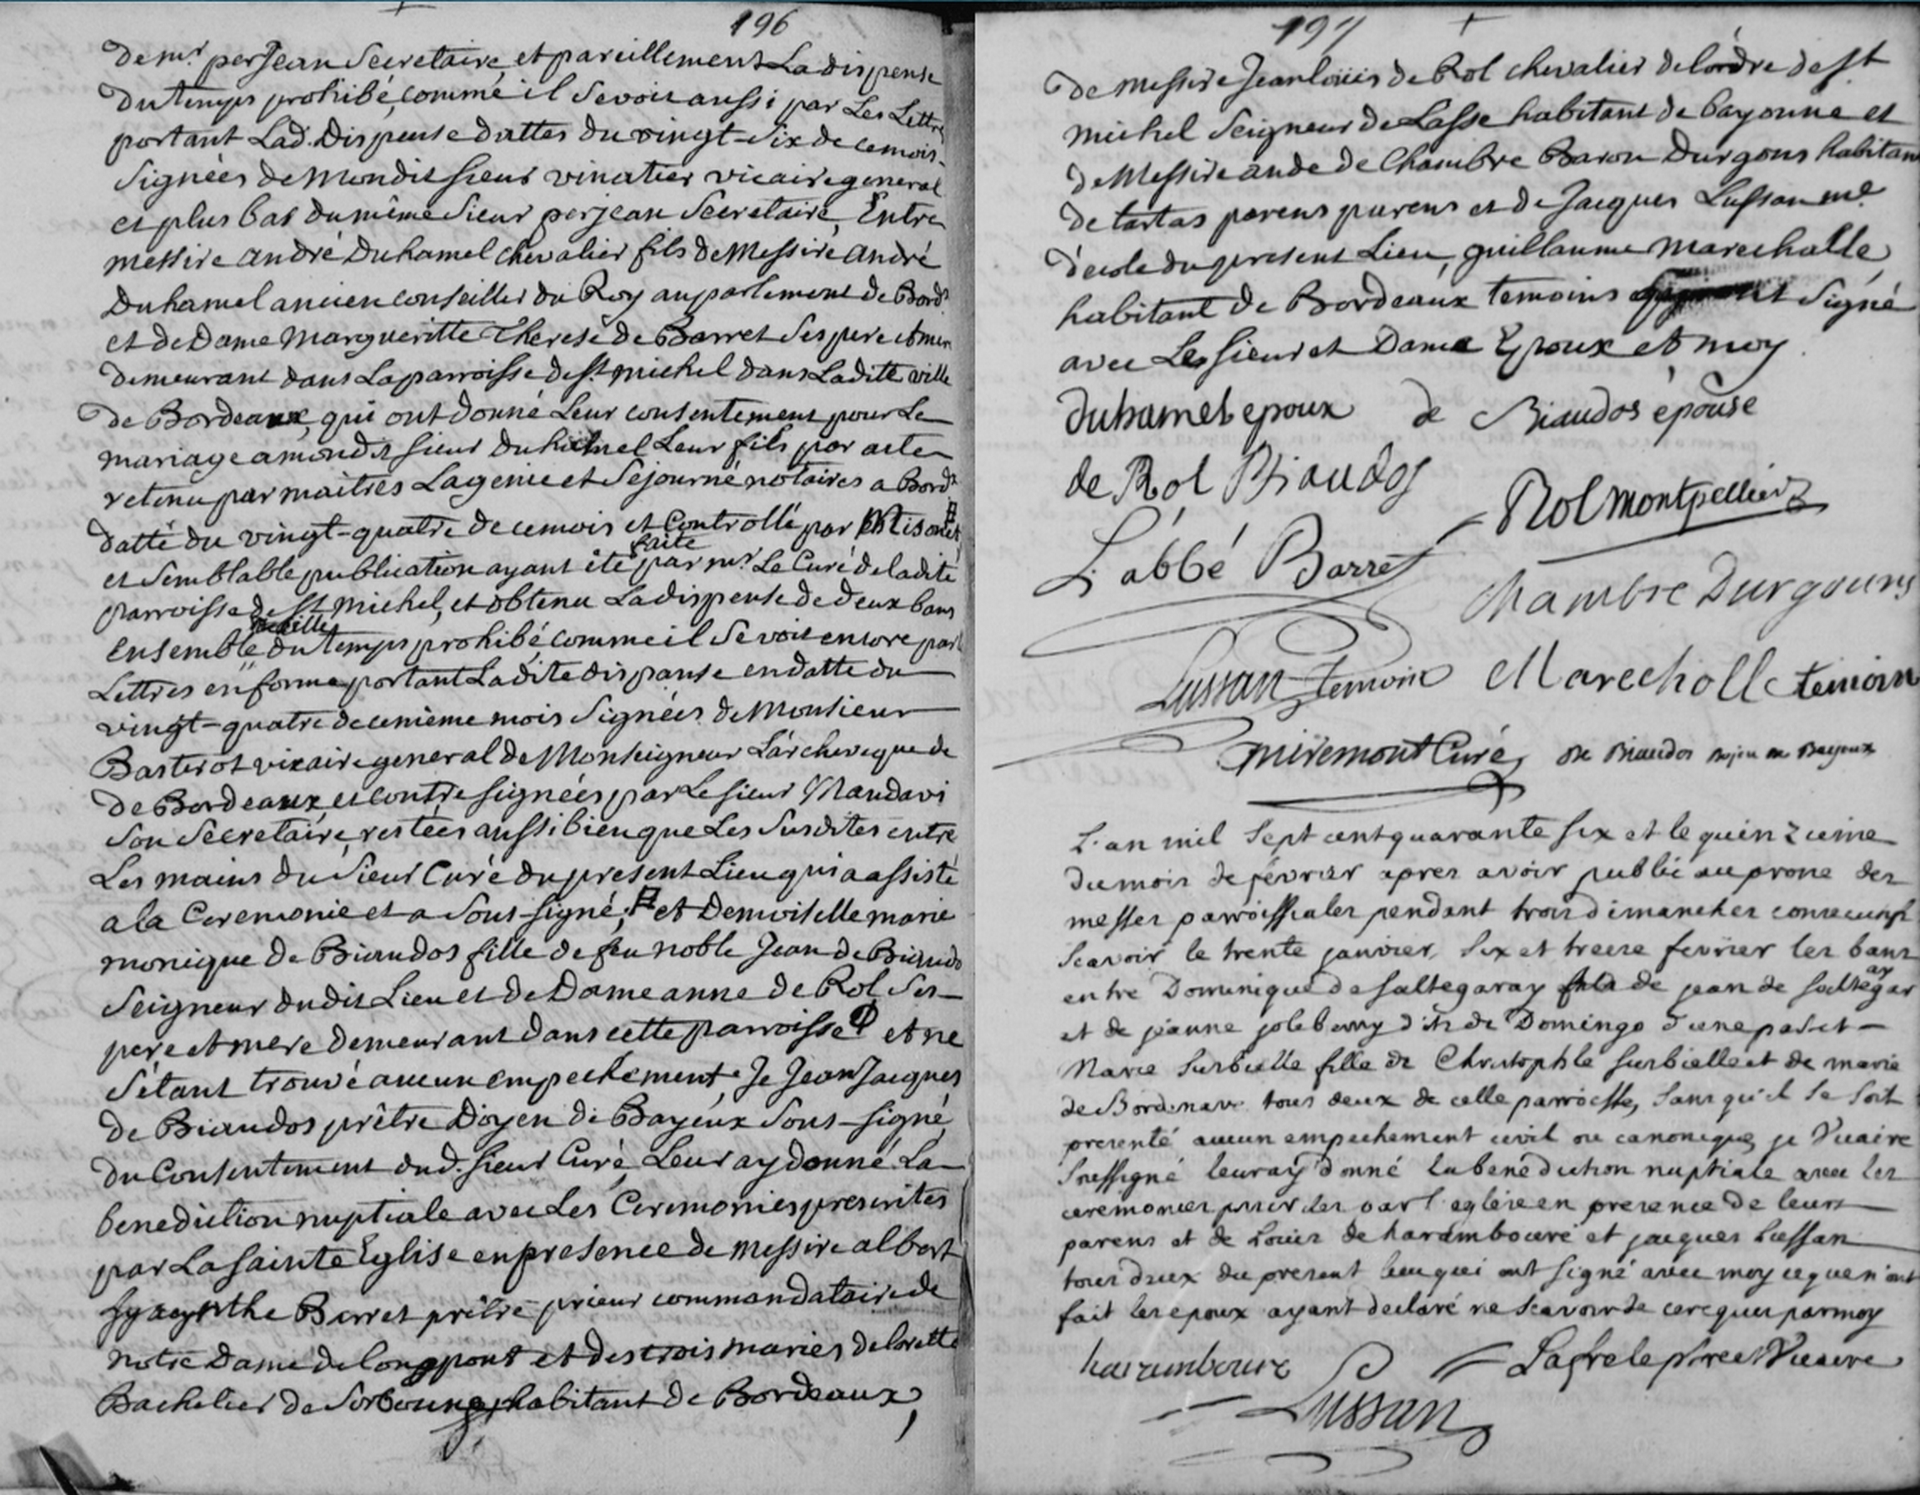 196
de mr perjean Secretaire et pareillement La dispense
du temps prohibé, comme il se voit aussi par Les Lettres
portant Lad. Dispense dattes du vingt-six de ce mois
Signées de Mondit sieur vinatier vicaire general
et plus bas du même sieur perjean Secretaire, Entre
messire andré Duhamel chevalier fils de Messire André
Duhamel ancien conseiller du Roy au parlement de Bordx
et de Dame Margueritte Therese de Barret ses pere et mere
demeurant dans La parroisse de st. michel dans Laditte ville
de Bordeaux, qui ont donné Leur consentement pour Le
mariage a mondit sieur Duhamel Leur fils par acte
retenu par maitres Lagenie et Sejourné notaires a Bordx
datté du vingt-quatre de ce mois et Controllé par
et semblable publication ayant été faite par mr. Le Curé de ladite
parroisse de St michel, et obtenu La dispense de deux bans
ensemble du temps prohibé comme il se voit encore par
Lettres en forme portant Ladite dispense en datte du
vingt-quatre de ce mième mois Signées de Monsieur
Basterot vicaire general de Monseigneur L'archeveque de
de Bordeaux, et contre signées par Le sieur Mandavi
son Secretaire, restées aussi bien que Les susdites entre
Les mains du sieur Curé du present Lieu qui a assisté
a la Ceremonie et a sous-signé; et Demoiselle marie
monique de Biaudos fille de feu noble Jean de Biaudos
Seigneur dudit Lieu et de Dame anne de Rol ses
pere et mere demeurant dans cette parroisse et ne
s'étant trouvé aucun empechement, Je Jean Jacques
de Biaudos prêtre Doyen de Bayeux sous-signé,
du Consentement dud. sieur Curé, Leur ay donné La
benediction nuptiale avec Les Ceremonies prescrites
par La sainte Eglise en presence de messire albert
hyacynthe Barret prêtre prieur commandataire de
notre Dame de longpont et des trois maries de lorette
Bachelier de Sorbonne, habitant de Bordeaux,
197
de messire Jean louis de Rol chevalier de lordre de st
michel Seigneur de Lasse habitant de bayonne et
de Messire ande de Chambre Baron Durgons habitant
de tartas parens parens et de Jacques Lussan me.
d'ecole du present Lieu, guillaume marechalle
habitant de Bordeaux temoins signé
avec Les sieur et Dame Epoux et moy
duhamel epoux de Biaudos épouse
de Rol Biaudos
Rol montpellier
L'abbé Barret
Chambre Durgouns
Lussan temoin Marecholle temoin
Miremont Curé, de Biaudos Dojen de Bayeux
L'an mil sept cent quarante six et le quinzieme
du mois de février apres avoir publié au prone des
messes parroissiales pendant trois dimanches consecutifs
scavoir le trente janvier, six et treize fevrier les bans
entre Dominique de saltegaray fils de jean de saltegaray
et de jeanne dit de Domingo d'une part et
Marie Surbielle fille de Christophle surbielle et de marie
de Bordenave tous deux de cette parroisse, sans qu'il se soit
presenté aucun empechement civil ou canonique, je Vicaire
soussigné leur ay donné la benediction nuptiale avec les
ceremonies prescrites par l'eglise en presence de leurs
parens et de Louis de haramboure et jacques Lussan
tous deux du present lieu qui ont signé avec moy ce que n'ont
fait les epoux ayant declaré ne scavoir de ce requis par moy
harambourre
Vicaire
Lussan